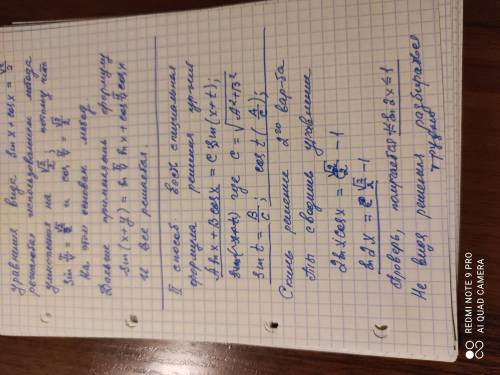 уравнения вида sin x + cos x = √2/2
решаются использованием метода
умножения на √2/2, потому что
sin π/4 = √2/2 и cos π/4 = √2/2
На этом основан метод
Дальше применяют формулу
sin (x + π/4) = sin π/4 sin x + cos π/4 cos x
и все решается.
II способ есть специальная
формула решения ур-ния
A sin x + B cos x = C sin (x+t);
где C = √A²+B²
sin t = B/C; cos t (A/C);
Скинь решение 2го вар-та
Ты сводишь уравнение
2 sin x cos x = √2/2 - 1
sin 2x = √2/2 - 1
Проверь, получается sin 2x ≤ 1
Не видя решения разбираться
трудно
REDMI NOTE 9 PRO
AI QUAD CAMERA